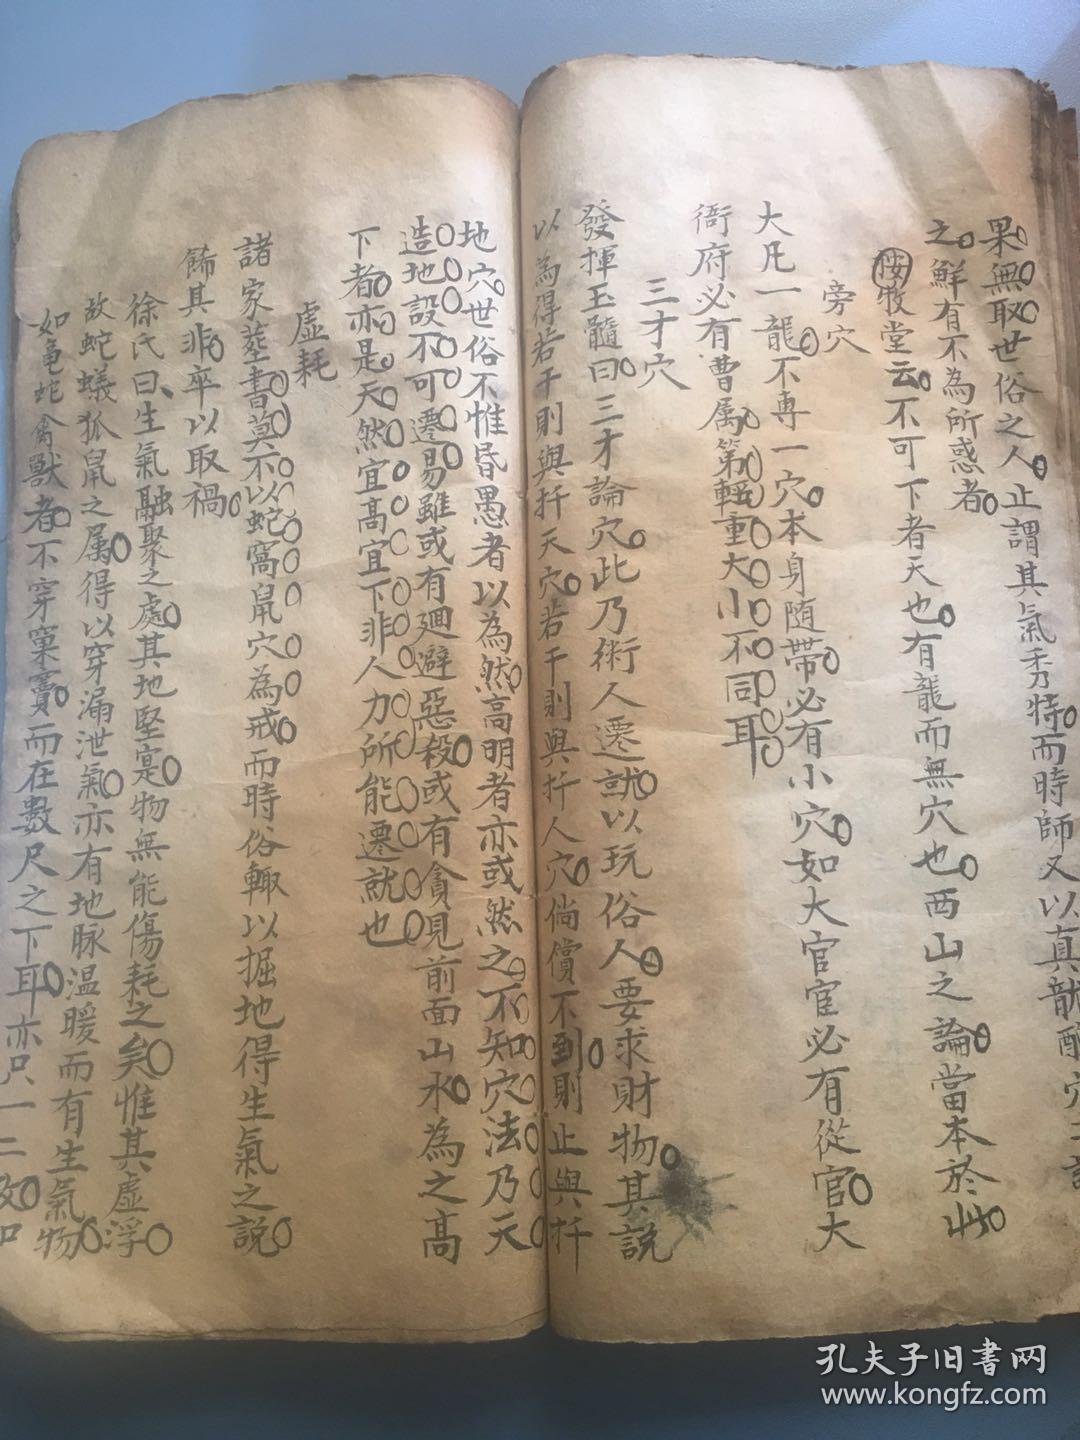 果無取世俗之人止謂其氣秀特而時師又以真龍
之鮮有不為所惑者
按牧堂云不可下者天也有龍而無穴也西山之論當本於此
旁穴
大凡一龍不專一穴本身随帶必有小穴如大官宦必有從官大
衙府必有曹属第輕重大小不同耳
三才穴
發揮玉髓曰三才論穴此乃術人遷就以玩俗人要求財物其説
以為得若干則與扦天穴若干則與扦人穴倘償不到則止與扦
地穴世俗不惟昏愚者以為然高明者亦或然之不知穴法乃天
造地設不可遷易雖或有廻避惡殺或有貪見前面山水為之高
下者亦是天然宜高宜下非人力所能遷就也
虛耗
諸家塟書莫不以蛇窩鼠穴為戒而時俗輙以掘地得生氣之説
飾其非卒以取禍
徐氏曰生氣融聚之處其地堅寔物無能傷耗之矣惟其虛浮
故蛇蟻狐鼠之属得以穿漏泄氣亦有地脉温暖而有生氣物
如龜蛇禽獸者不穿窠竇而在數尺之下耳亦只一二
孔夫子旧書网
www.kongfz.com